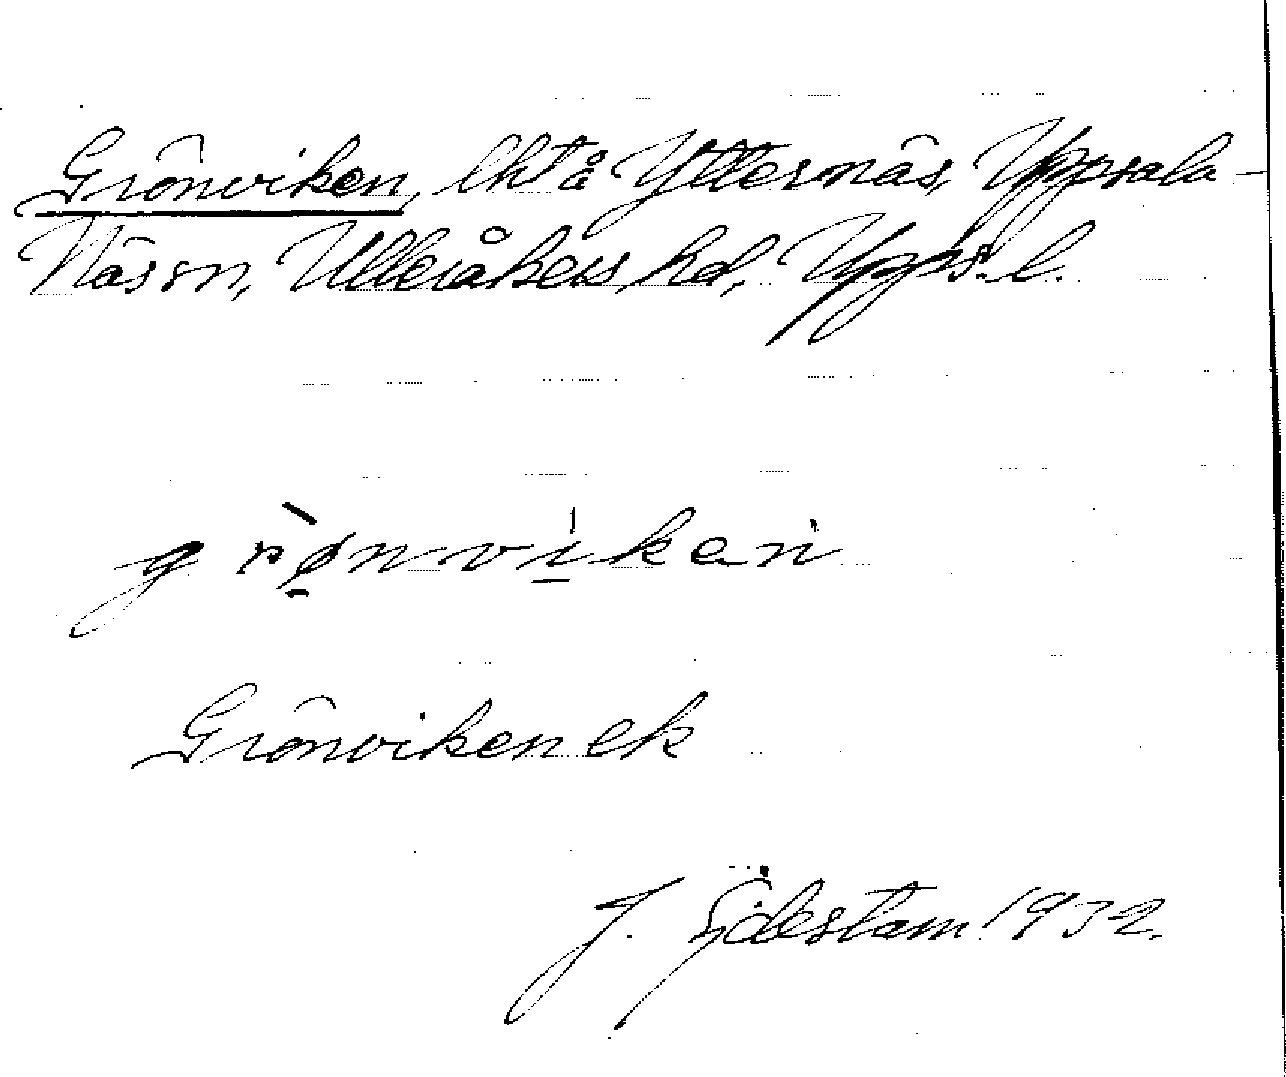 Grönviken, lht å Ytternäs, Uppsala-
Näs sn, Ulleråkers hd, Upps. l.
grø̀nvi̍kan
Grönviken ek
J. Sjödestam 1932.